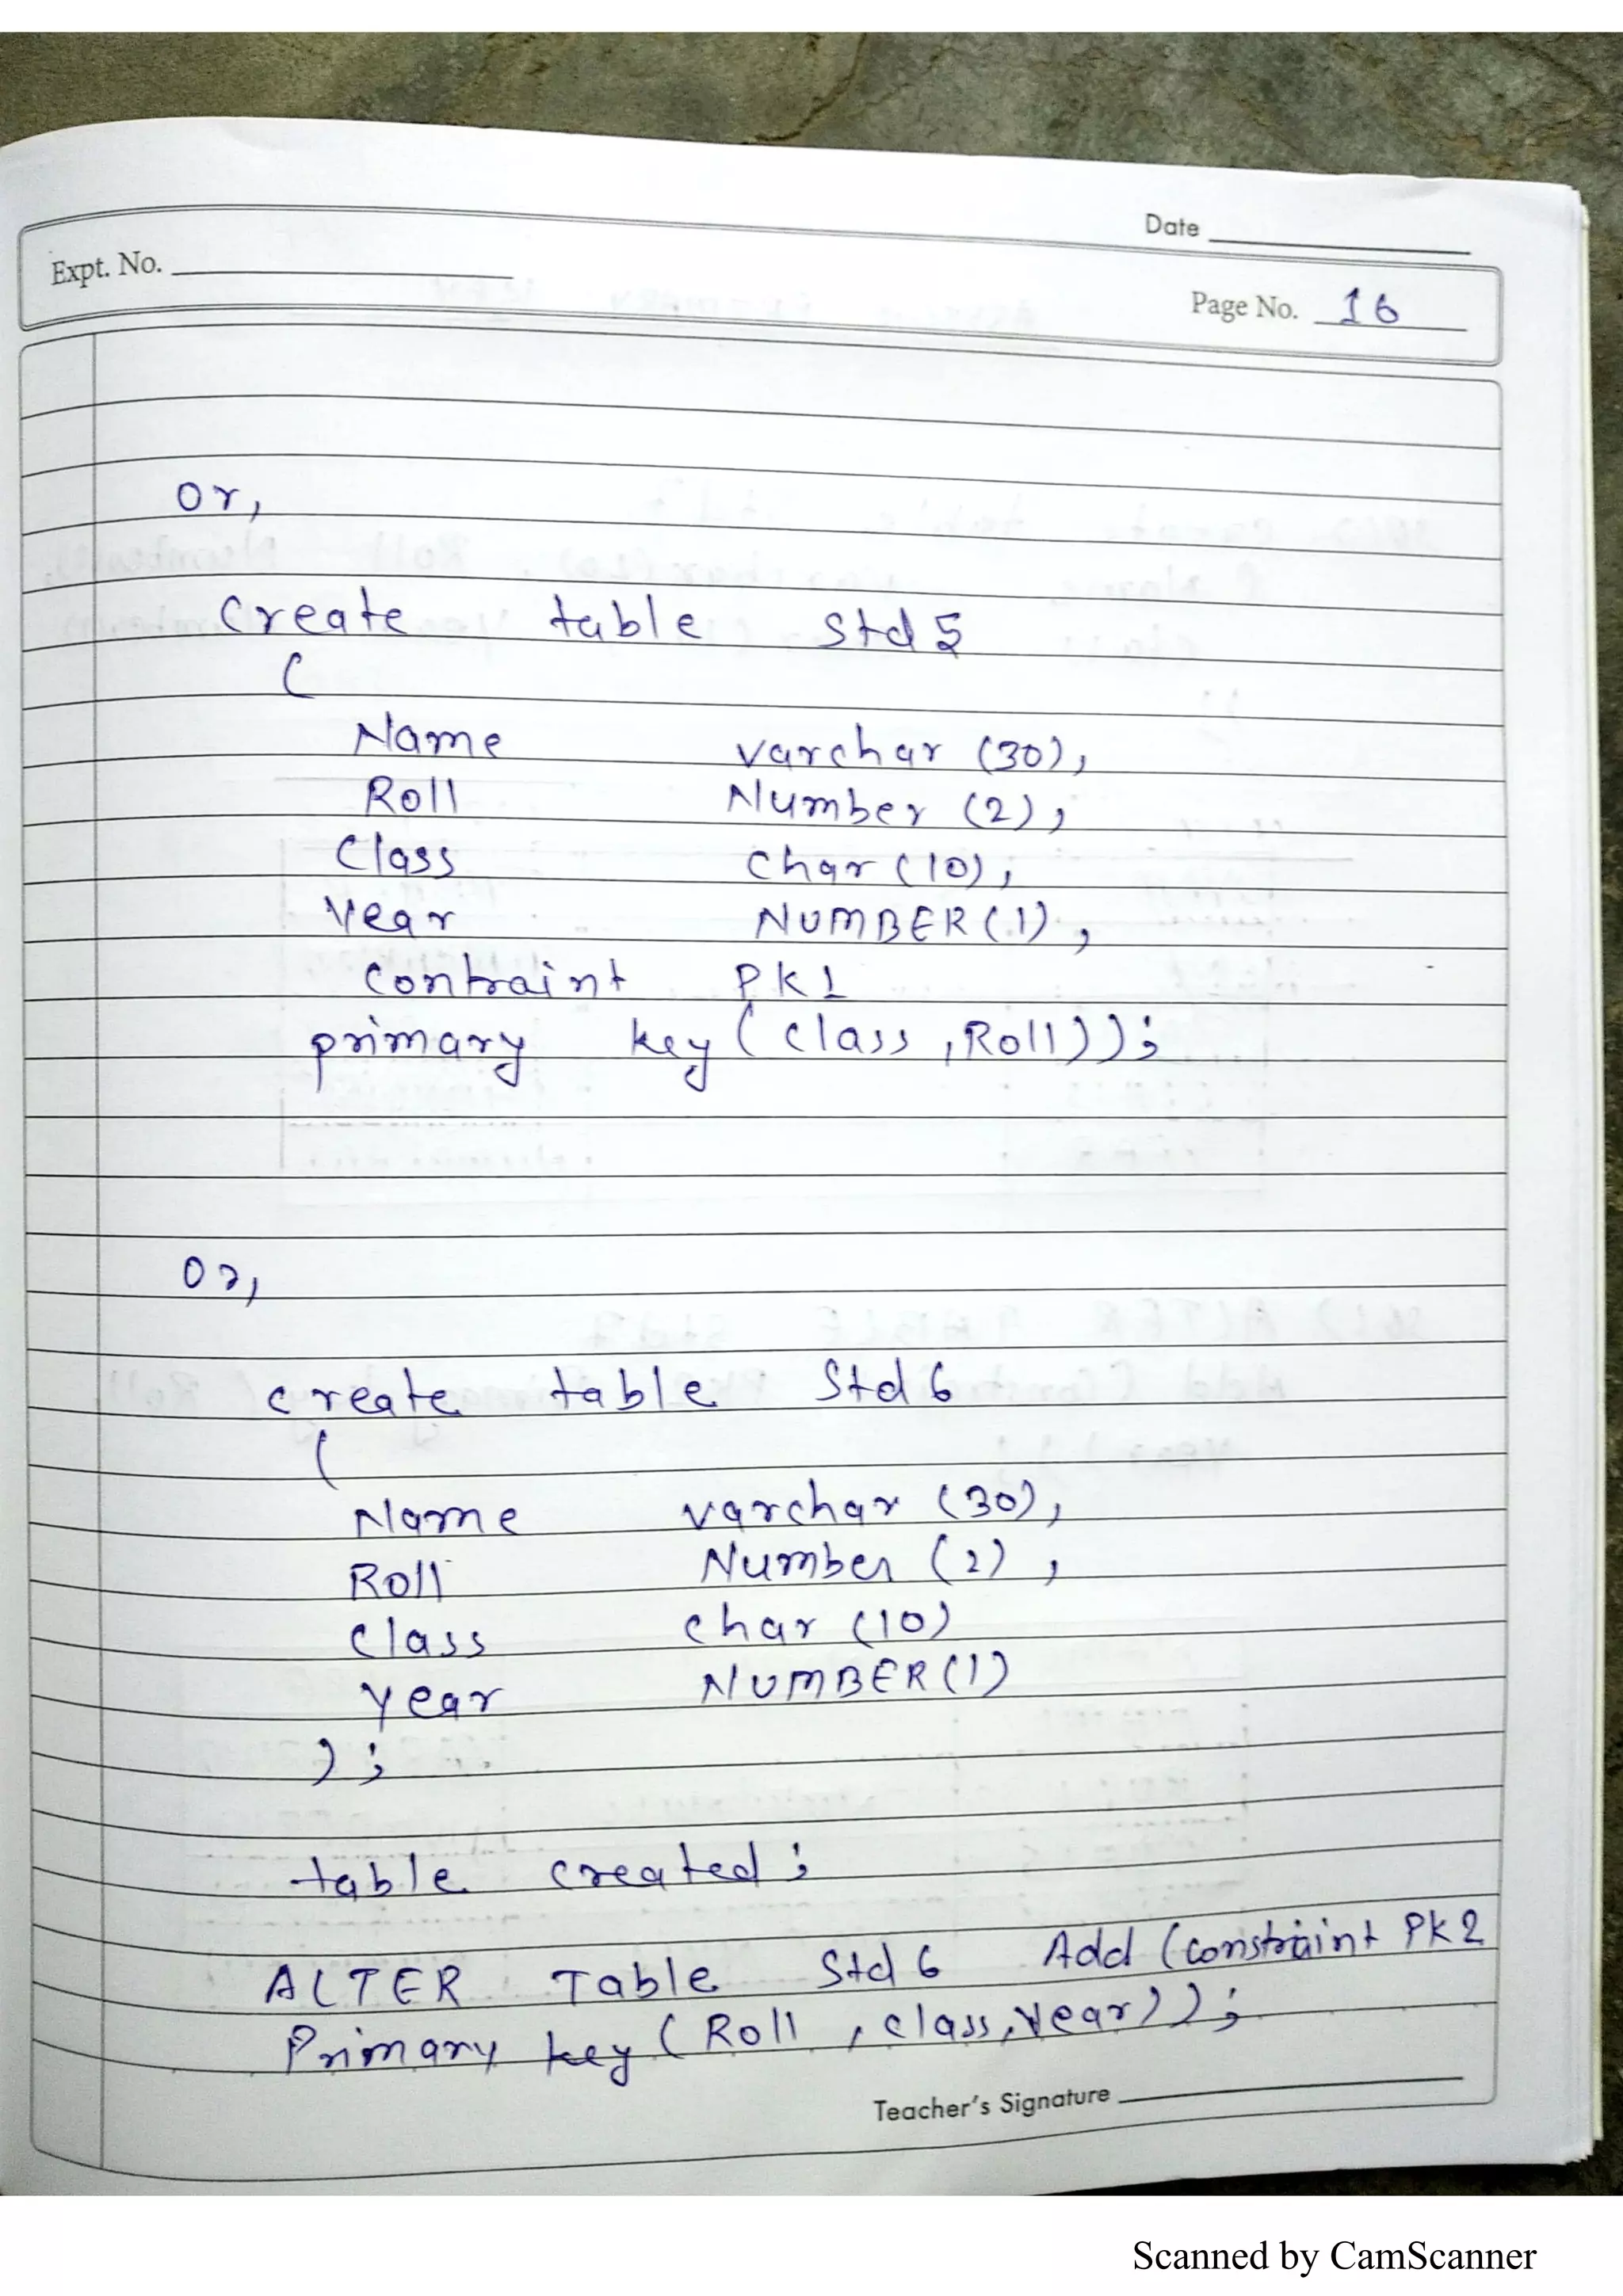 Date
Expt. No.
Page No. 16
or,
Create table Std 5
(
Name varchar (30),
Roll Number (2),
Class char (10),
Year NUMBER (1),
Contraint PK1
primary key (class, Roll));
or,
create table Std 6
(
Name varchar (30),
Roll Number (2),
Class char (10)
Year NUMBER (1)
);
table created;
ALTER Table Std 6 Add (constraint PK2
Primary key (Roll, class, Year));
Teacher's Signature
Scanned by CamScanner